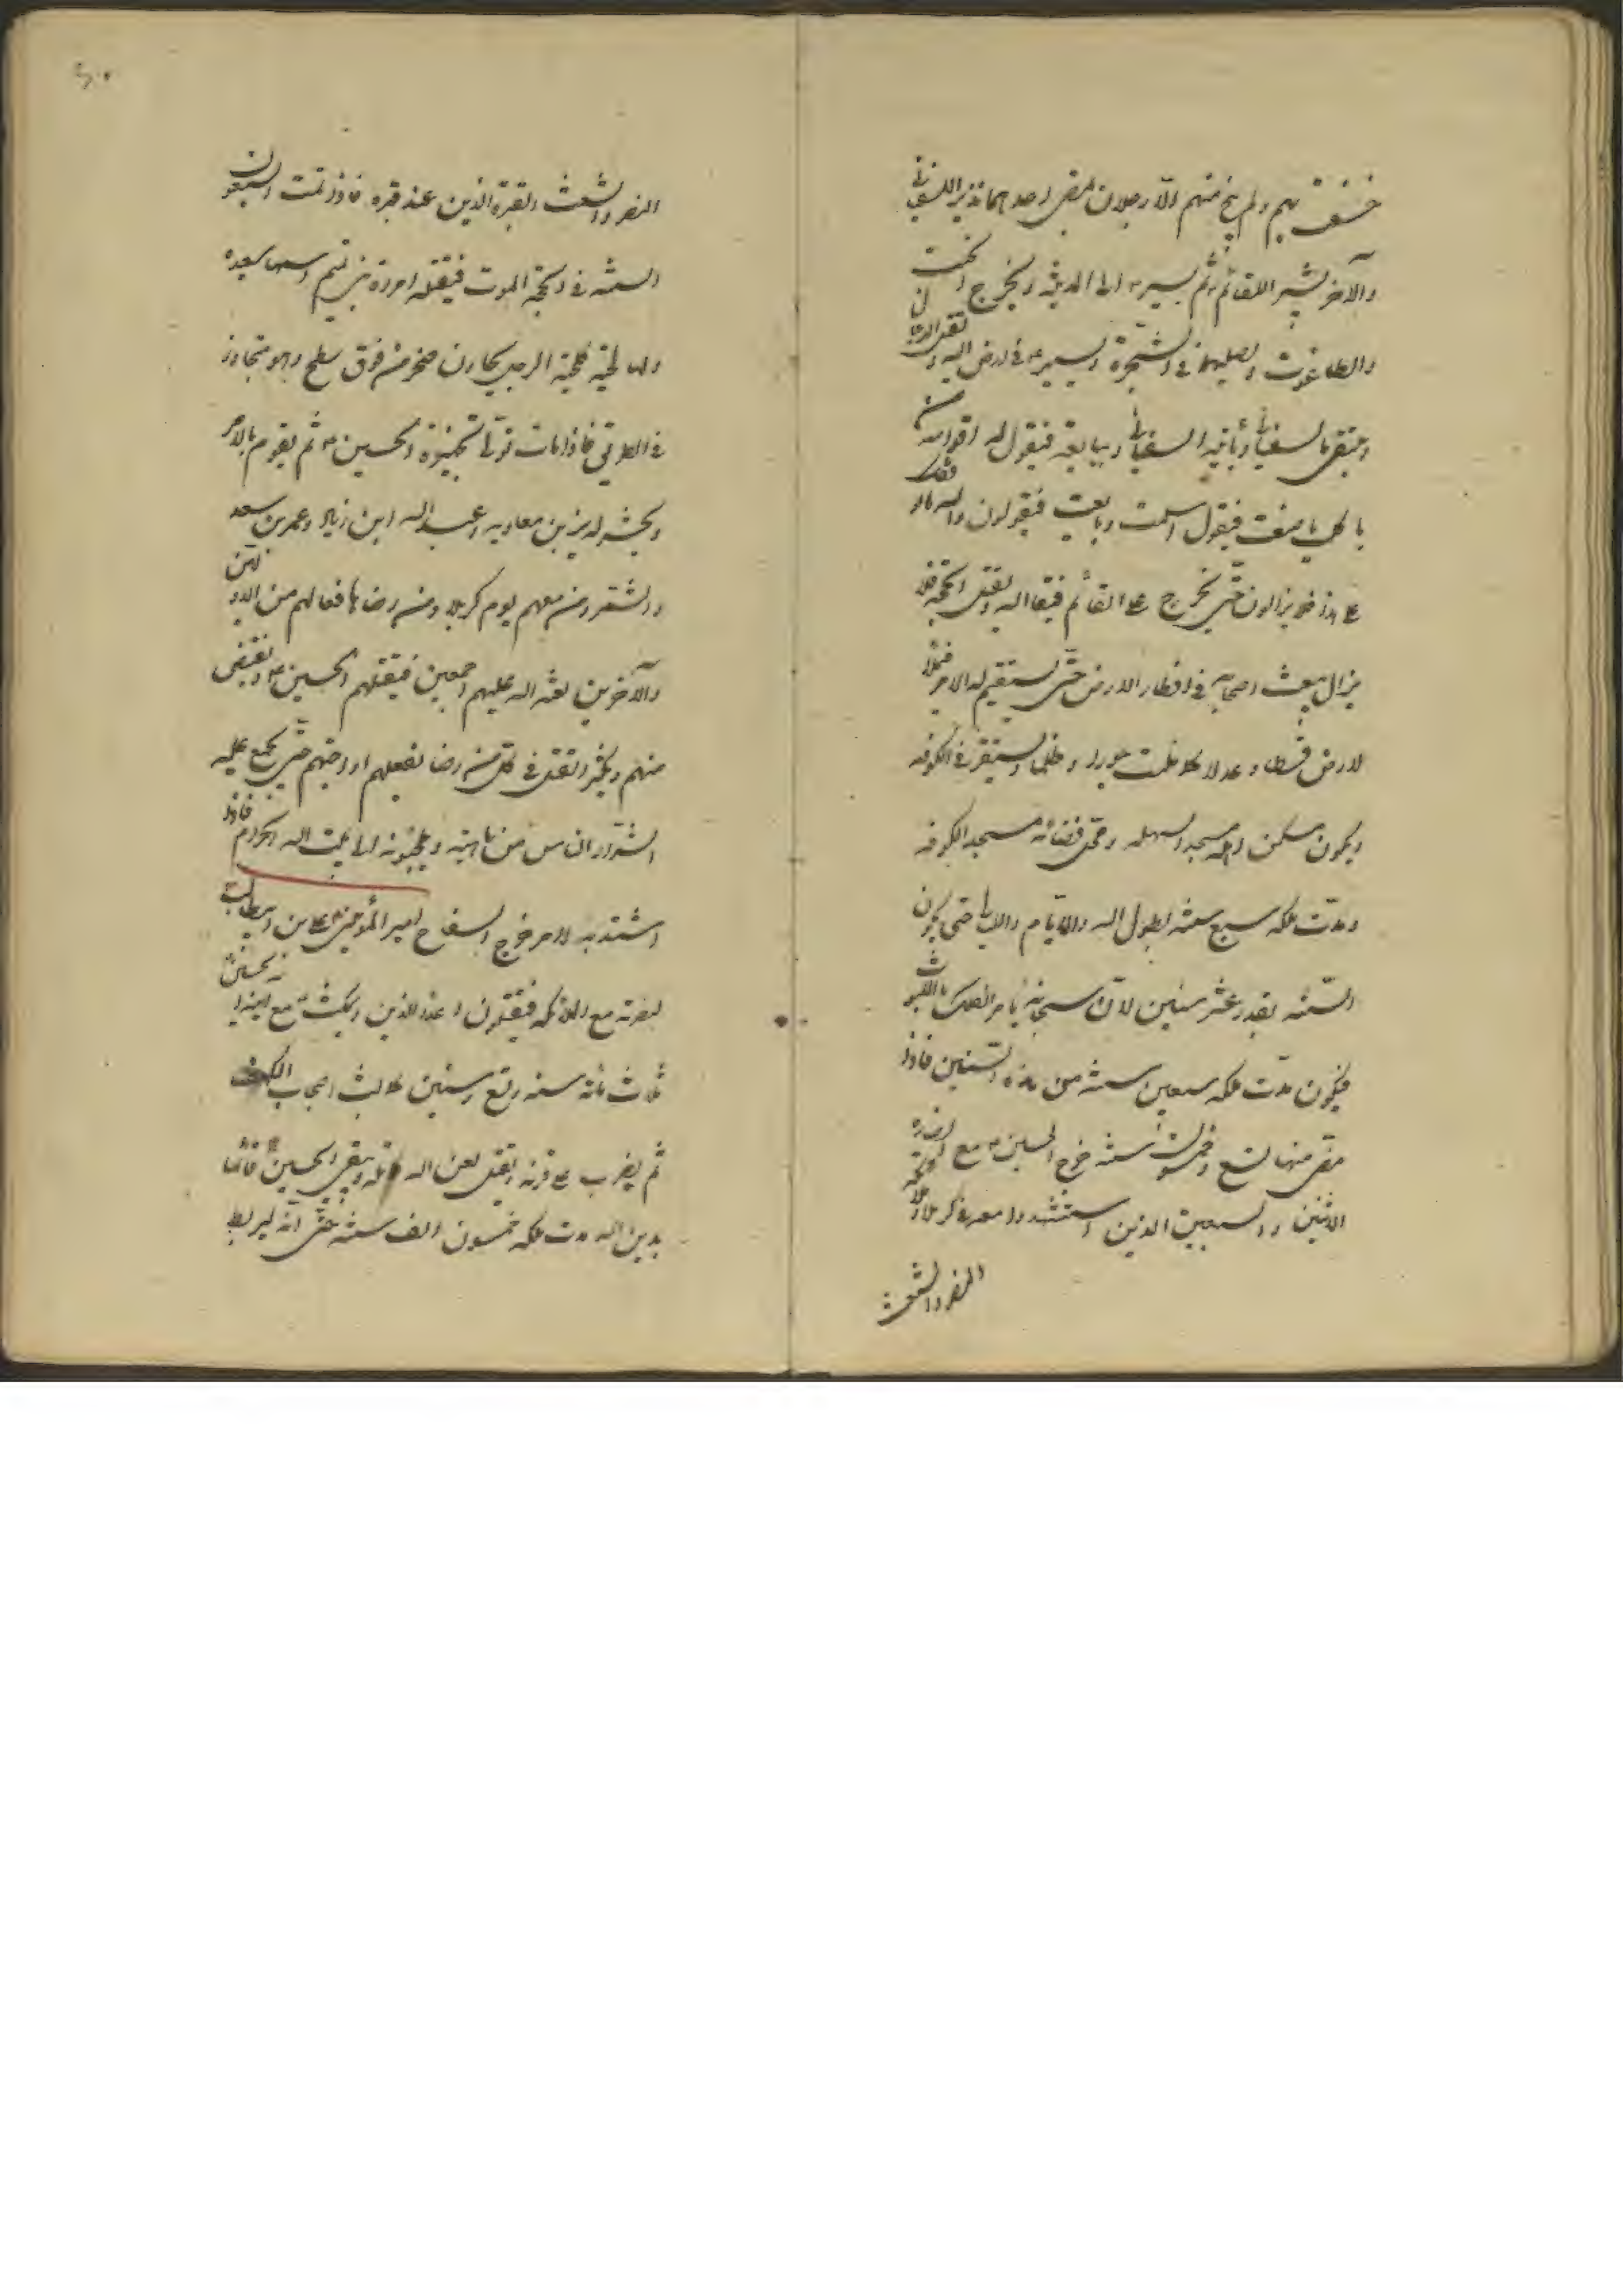 خسف بهم ولم ينج منهم الّا رجلان يمضى احدهما نذير السفيانى
والآخر بشير للقائم ثم يسير الى المدينة ويخرج الجبت
والطاغوت ويصلبهما فى الشجرة ويسير فى ارض الله ويقتل الدجال
ويلتقى بالسفيانى ويأتيه السفيانى ويبايعه فيقول له اقوامه من
يا كلب ما صنعت فيقول اسلمت وبايعت فيقولون والله ما
على هذا فلا يزالون حتّى يخرج على القائم فيقاتله ويقتله الحجة فلا
يزال يبعث اصحابه فى اقطار الارض حتّى يستقيم له الامر فيملأ
الارض قسطا وعدلا كما ملئت جورا وظلما ويستقر فى الكوفه
ويكون مسكن اهله مسجد السهله ومحل قضائه مسجد الكوفه
ومدّت ملكه سبع سنه يطول الله الايّام والليالى حتى يكون
السّنه بقدر عشر سنين لانّ الله سبحانه يأمر الفلك باللبوث
فيكون مدّت ملكه سبعين سنه من هذه السّنين فاذا
مضى منها تسع وخمسون سنه خرج الحسين مع انصاره
الاثنين والسبعين الذين استشهدوا معه فى كربلا وملائكة
النصر والشعث
النصر والشعث الغبره الذين عند قبره فاذا تمّت السبعون
السنه فى الحجة الموت فيقتله امرأة من بنى تميم اسمها سعيده
ولها لحية كلحية الرجل بجاون صخر من فوق سطح وهو متجاوز
فى الطريق فاذا مات تولّى تجهيزه الحسين ثم يقوم بالامر
ويحشر له يزيد بن معاويه وعبيد الله ابن زياد وعمر بن سعد
والشمر ومن معهم يوم كربلا ومن رضا بافعالهم من الاولين
والآخرين لعنة الله عليهم اجمعين فيقتلهم الحسين ويقتص
منهم ويكثر القتل فى كل من رضا بفعلهم او احبّهم حتّى يجمع عليه
اشرار الناس من كل ناحية ويلجئونه الى بيت الله الحرام فاذا
اشتد به الامر خرج السفاح امير المؤمنين على بن ابيطالب
لنصرته مع الملائكه فيقتلون اعداء الدين ويمكث مع ابنه الحسين
ثلاث مائة سنه وتسع سنين كما لبث اصحاب الكهف
ثم يضرب على قرنه ويقتل لعن الله قاتله ويبقى الحسين قائما
بدين الله ومدت ملكه خمسون الف سنه حتّى انّه ليربط